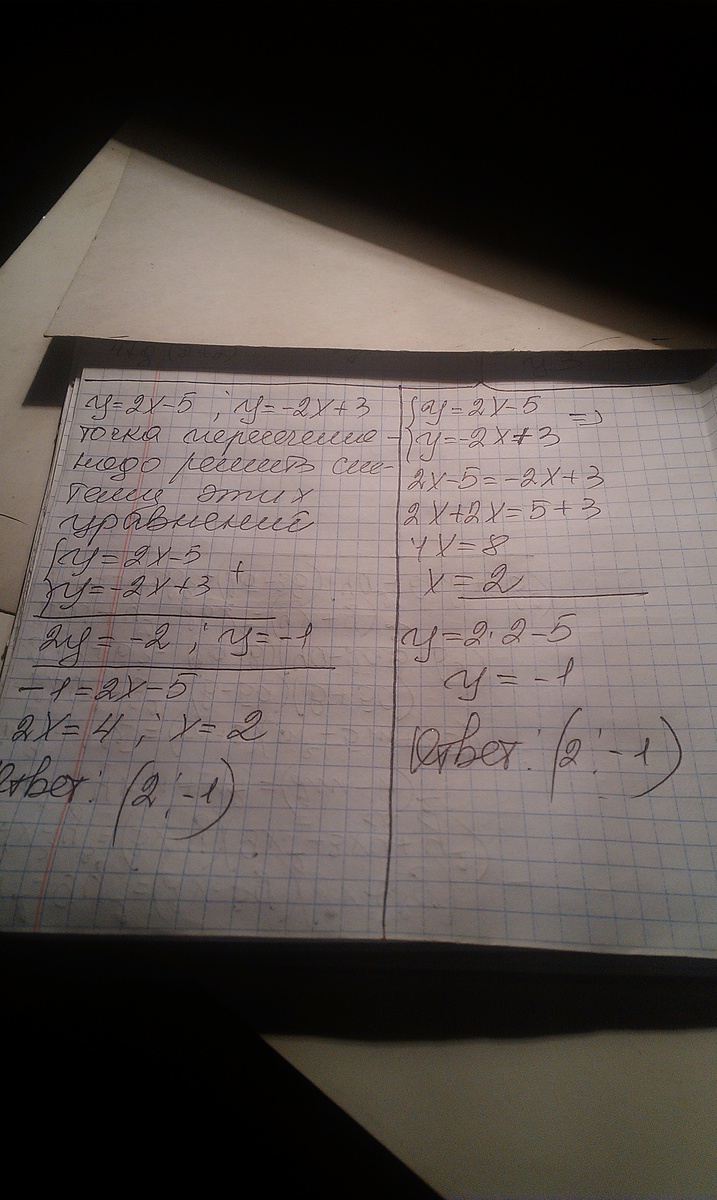 y=2x-5 ; y=-2x+3
точка пересечение -
надо решить сис-
темы этих
уравнений
{y=2x-5
{y=-2x+3 +
2y=-2 ; y=-1
-1=2x-5
2x=4 ; x=2
Ответ: (2;-1)
{y=2x-5
{y=-2x+3 =>
2x-5=-2x+3
2x+2x=5+3
4x=8
x=2
y=2·2-5
y=-1
Ответ: (2;-1)